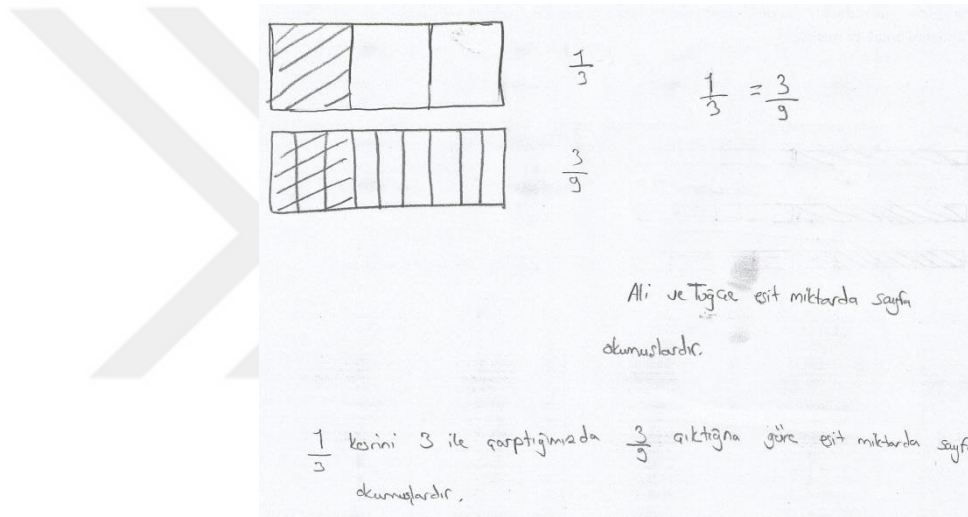 1/3
1/3 = 3/9
3/9
Ali ve Tuğçe eşit miktarda sayfa
okumuşlardır.
1/3 kesrini 3 ile çarptığımızda 3/9 çıktığna göre eşit miktarda sayfa
okumuşlardır.